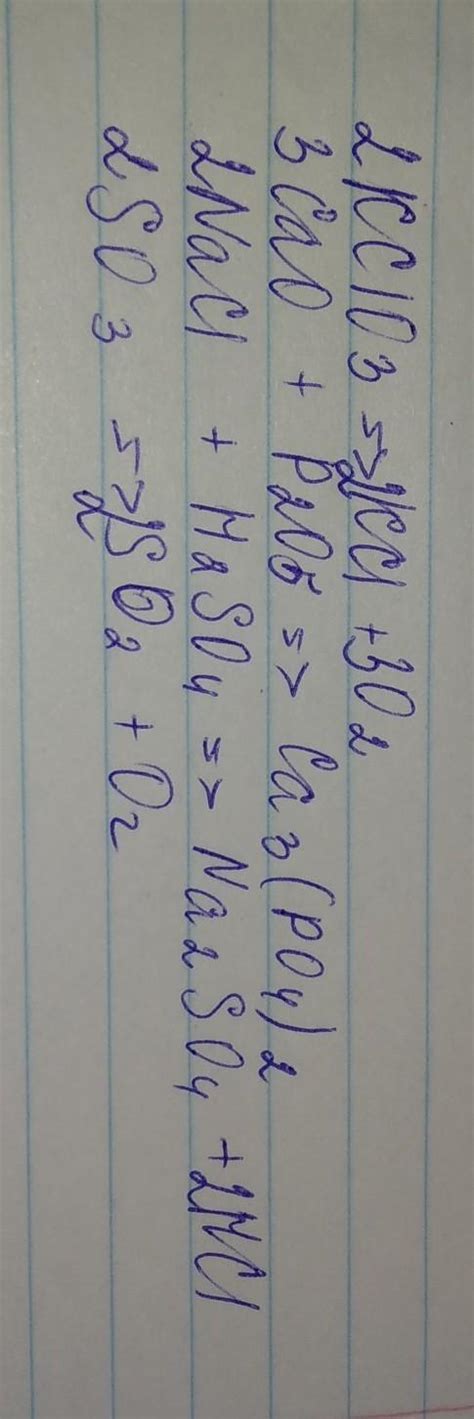 2KClO3 => 2KCl + 3O2
3CaO + P2O5 => Ca3(PO4)2
2NaCl + H2SO4 => Na2SO4 + 2HCl
2SO3 => 2SO2 + O2